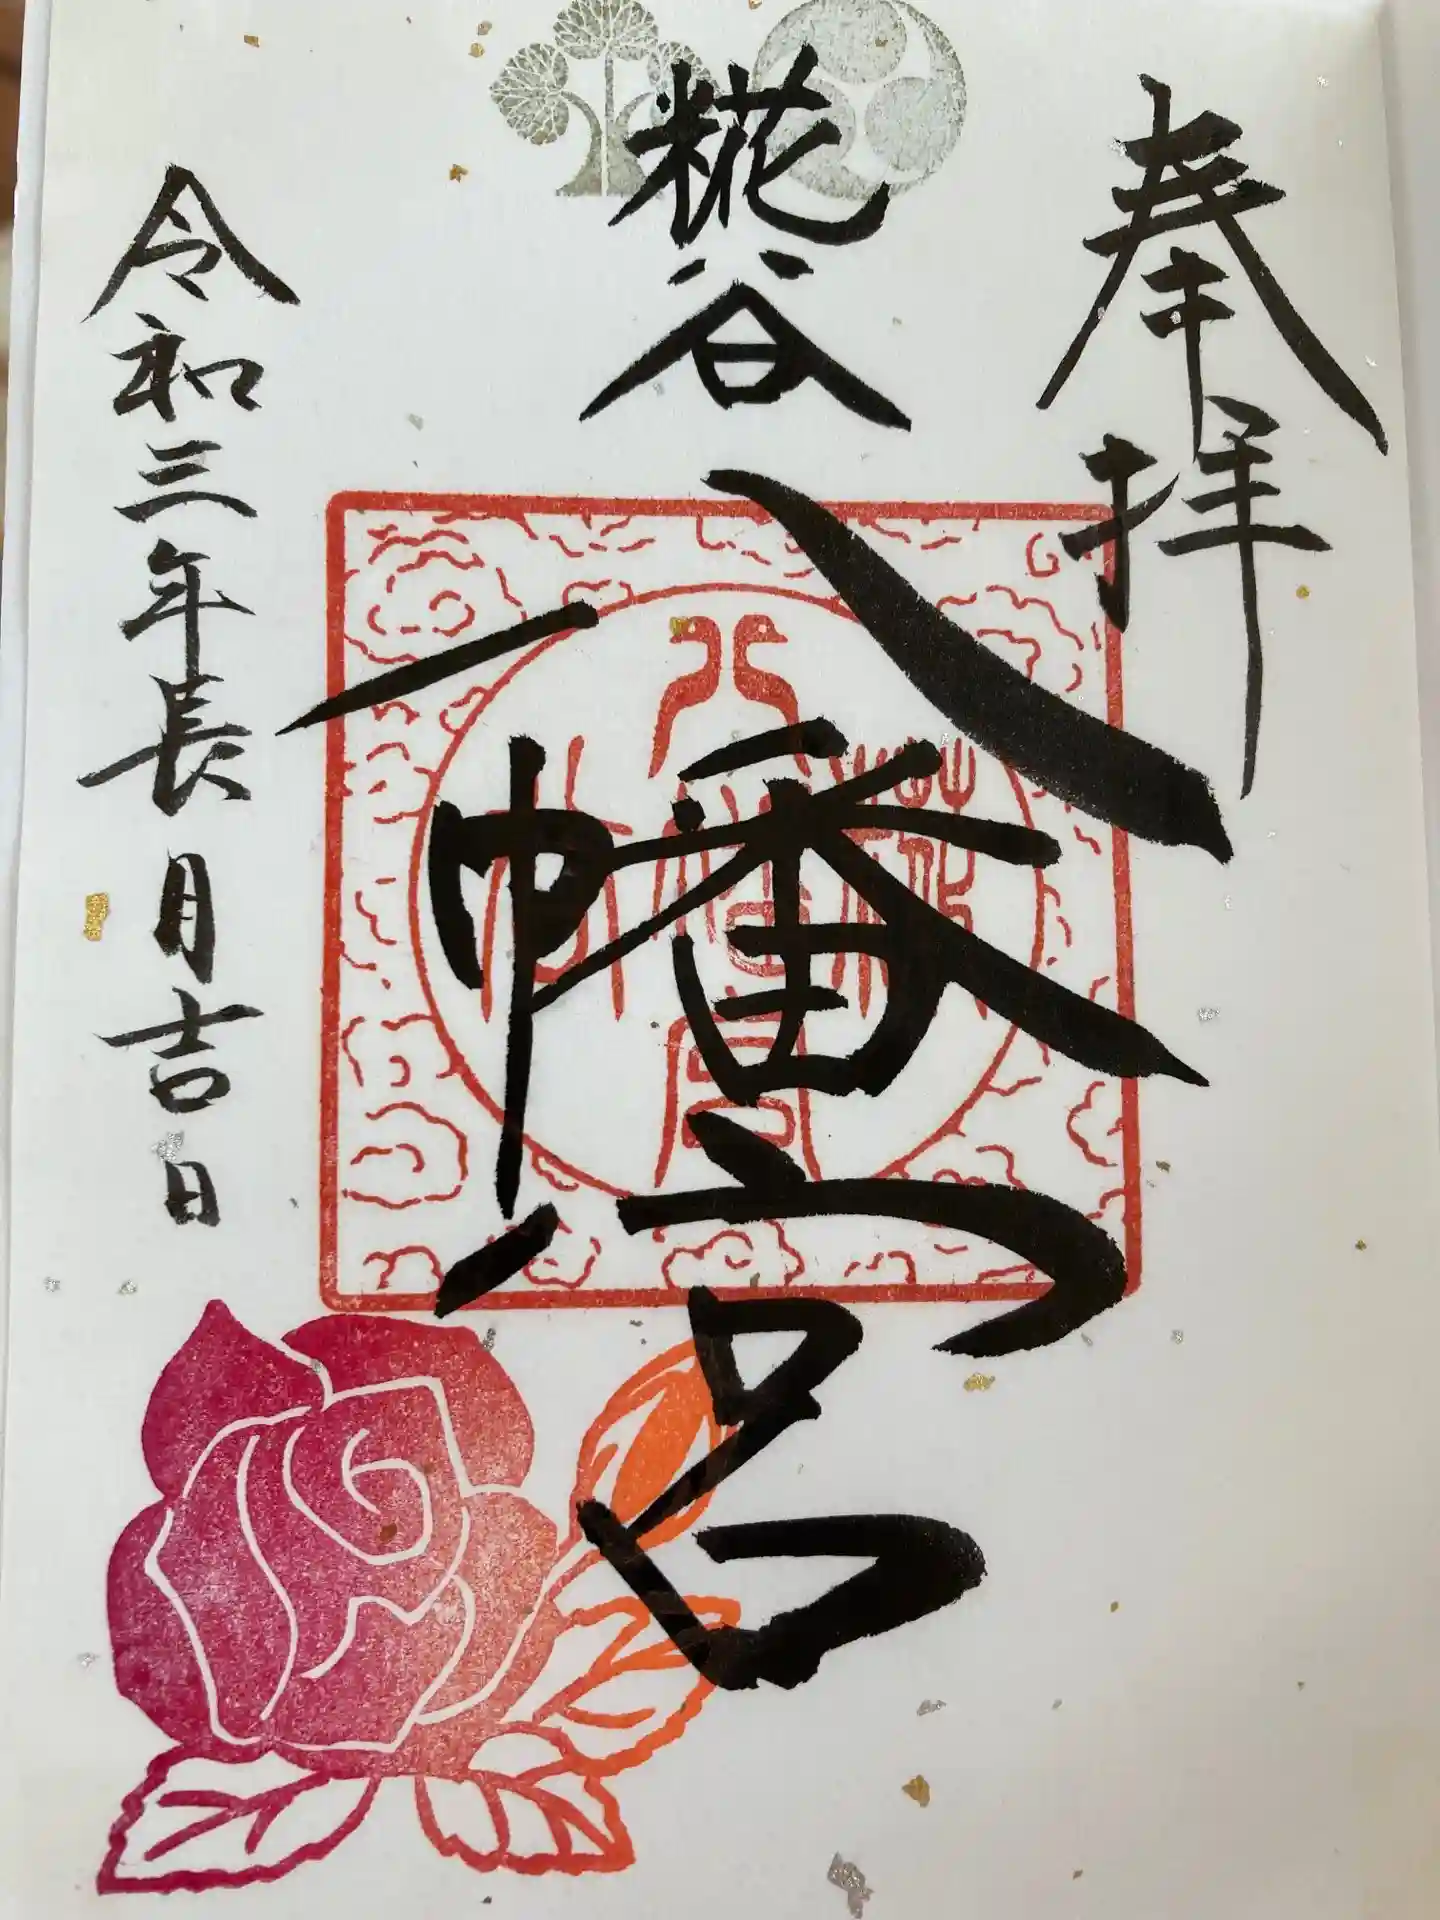 奉拝
糀谷
八幡宮
令和三年長月吉日